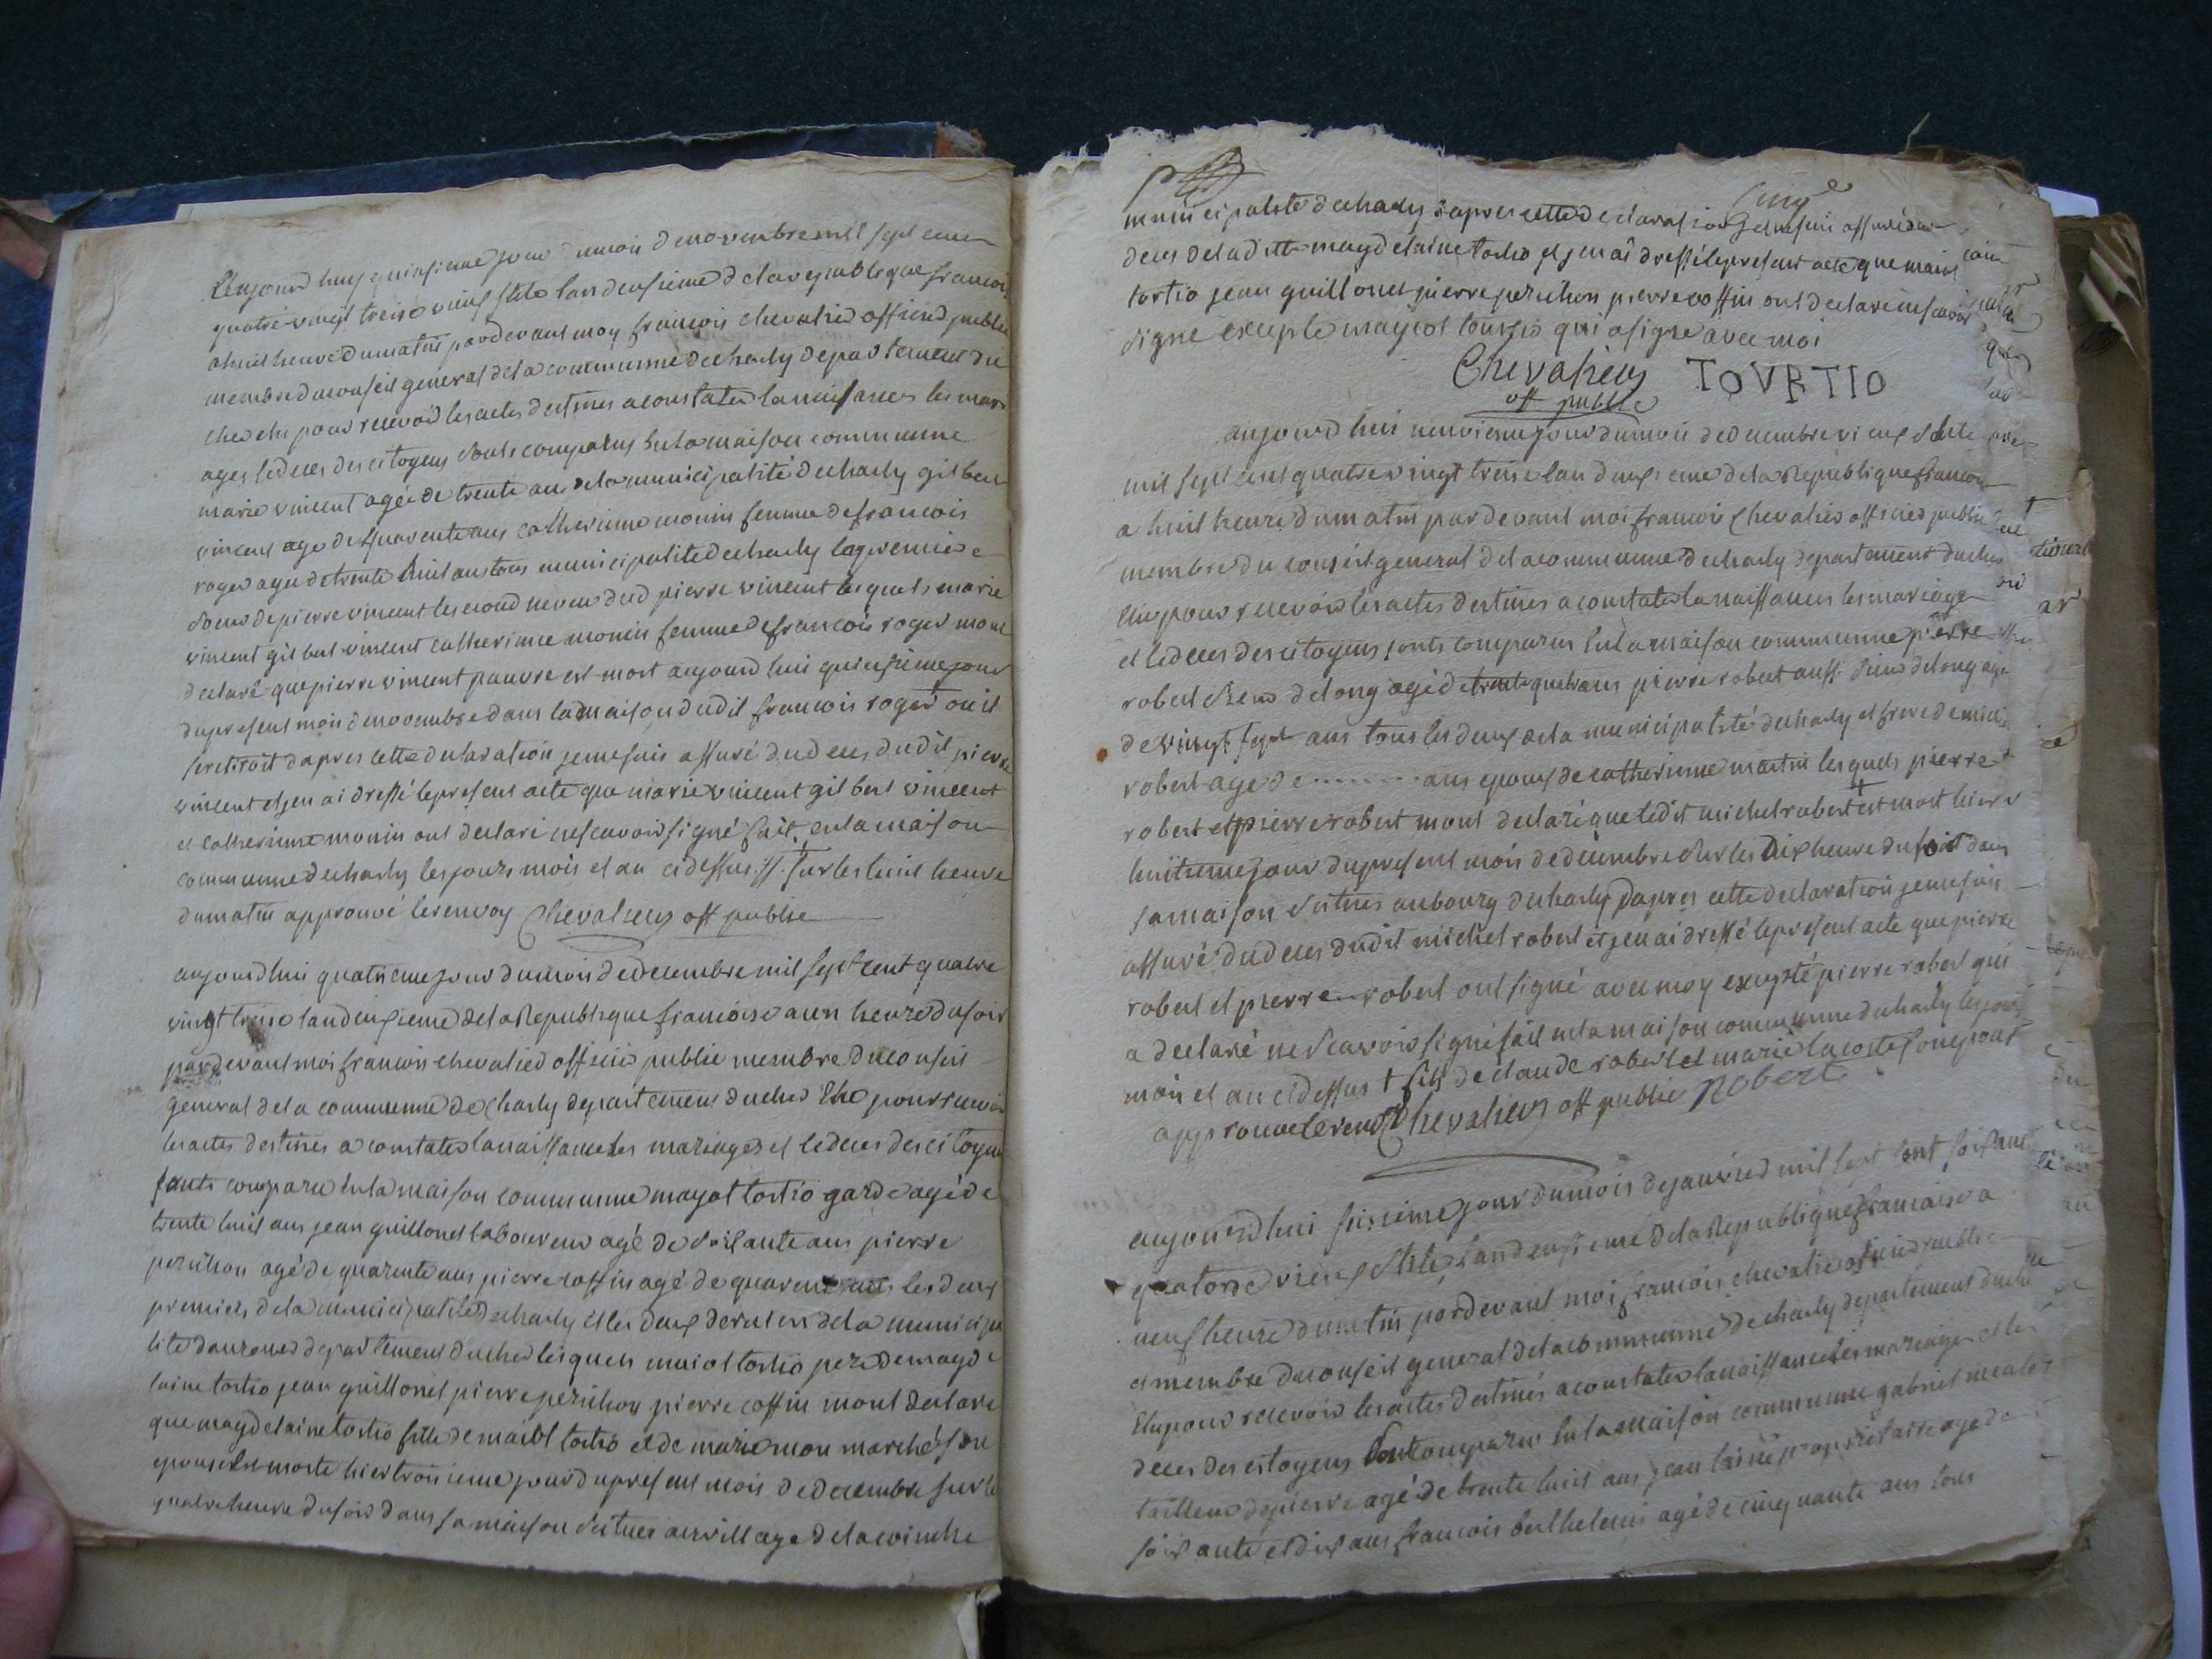 aujourd huy quinsieme jour du mois de novembre mil sept cent
quatre vingt treise vieux stile lan deusieme de la republique francois
a huit heure du matin pardevant moy francois chevalier officier public
membre du conseil general de la communne de charly departement du
cher elu pour recevoir les actes destines a constater la naissances les mari
ages le deces des citoyens sonts comparus en la maison communne
marie vincent agée de trente ans de la municipalité de charly gilbert
vincent age de quarente ans catherinne monin femme de francois
roger agee de trente huit ans tous municipalite de charly la premiere
soeur de pierre vincent le second neveu dud pierre vincent lesquels marie
vincent gilbert vincent catherinne monin femme de francois roger mont
declaré que pierre vincent pauvre est mort aujourd hui quinsieme jour
du present mois de novembre dans la maison dudit francois roger ou il
se retiroit dapres cette declaration je me suis assuré du deces dudit pierre
vincent et jen ai dressé le present acte que marie vincent gilbert vincent
et catherinne monin ont declaré ne scavoir signé fait en la maison
communne de charly les jours mois et an ci dessus sur les huit heure
du matin approuvé le renvoy Chevaliers off public
aujourdhui quatrieme jour du mois de decembre mil sept cent quatre
vingt treise lan deusieme de la Republique francoise a un heure du soir
pardevant moi francois chevalier officier public membre du conseil
general de la communne de Charly departement du cher Elu pour recevoir
les actes destines a constater la naissance les mariages et le deces des citoyens
sonts comparu en la maison communne mayot tortio garde agé de
trente huit ans jean guillonet laboureur agé de soisante ans pierre
peruchon agé de quarente ans pierre coffin agé de quarente ans les deux
premiers de la municipalité de charly et les deux derniers de la municipa
lité departement du cher lesquels maiol tortio pere de magde
laine tortio jean guillonet pierre peruchon pierre coffin mont declaré
que magdelaine tortio fille de maiol tortio et de marie mon marché son
epouse est morte hier troisieme jour du present mois de decembre sur le
quatre heure du soir dans sa maison situees au village de la
municipalité de charly dapres cette declaration je me suis assuré du
deces de la ditte magdelaine tortio et jen ai dressé le present acte que maiol
tortio jean guillonet pierre peruchon pierre coffin ont declaré ne scavoir
signe excepte mayiol tourtio qui a signe avec moi
Chevaliers TOVRTIO
off public
aujourd hui neuvieme jour du mois de decembre vieux stile
mil sept cent quatre vingt treise lan deusieme de la Republique francoise
a huit heure du matin pardevant moi francois Chevalier officier public
membre du conseil general de la communne de charly departement du cher
Elu pour recevoir les actes destines a constater la naissances les mariages
et le deces des citoyens sonts comparus en la maison communne pierre
robert de long agé de trente quatre ans pierre robert aussi de long age
de vingt sept ans tous les deux de la municipalité de charly et frere de michel
robert age de .......... ans epoux de catherinne martin lesquels pierre
robert et pierre robert mont declaré que ledit michel robert † est mort hier
huitieme jour du present mois de decembre sur les dix heure du soir dans
sa maison situes au bourg de charly dapres cette declaration je me suis
assuré du deces dudit michel robert et jen ai dressé le present acte que pierre
robert et pierre robert ont signé avec moy excepté pierre robert qui
a declaré ne scavoir signé fait en la maison communne de charly les jours
mois et an ci dessus † fils de claude robert et marie lacoste son epouse
approuve le renvoy Chevaliers off public Robert
aujourdhui sisieme jour du mois de janvier mil sept cent soisante
quatorse vieux stile lan deusieme de la Republique francaise a
neuf heure du matin pardevant moi francois chevalier officier public
et membre du conseil general de la communne de charly departement du cher
Elu pour recevoir les actes destinés a constater la naissance les mariages et les
deces des citoyens sont comparus en la maison communne gabriel
tailleur de pierre agé de trente huit ans jean lainé propriétaire age de
soisante et dix ans francois berthelemis agé de cinquante ans tous